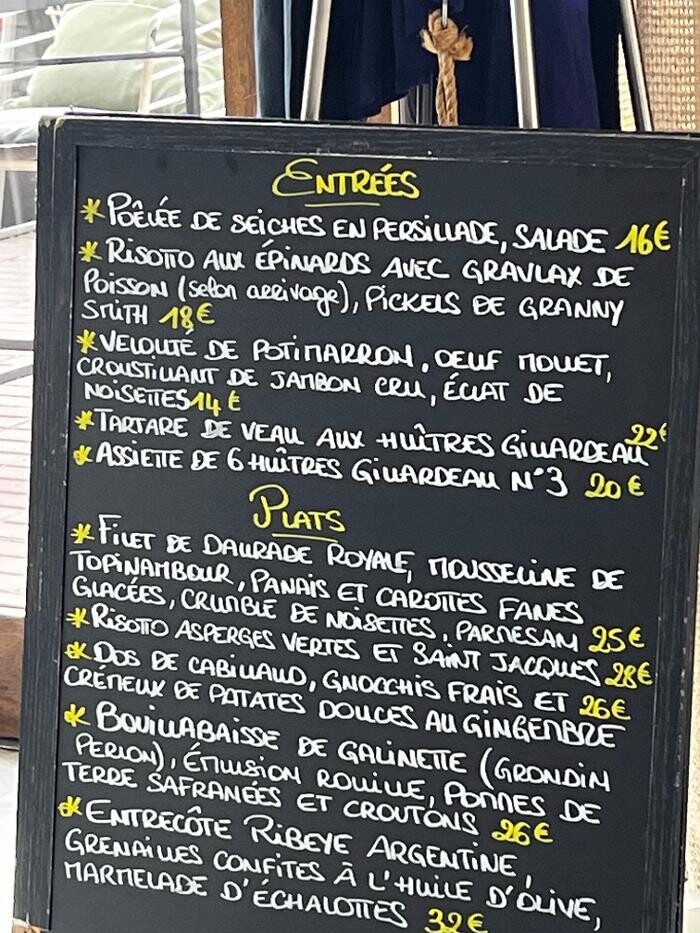 ENTRÉES
* POÊLÉE DE SEICHES EN PERSILLADE, SALADE 16€
* RISOTTO AUX ÉPINARDS AVEC GRAVLAX DE
POISSON (selon arrivage), PICKELS DE GRANNY
SMITH 18€
* VELOUTÉ DE POTIMARRON, OEUF MOLLET,
CROUSTILLANT DE JAMBON CRU, ÉCLAT DE
NOISETTES 14€
* TARTARE DE VEAU AUX HUÎTRES GILLARDEAU 22€
* ASSIETTE DE 6 HUÎTRES GILLARDEAU N°3 20€
PLATS
* FILET DE DAURADE ROYALE, MOUSSELINE DE
TOPINAMBOUR, PANAIS ET CAROTTES FANES
GLACÉES, CRUMBLE DE NOISETTES, PARMESAN 25€
* RISOTTO ASPERGES VERTES ET SAINT JACQUES 28€
* DOS DE CABILLAUD, GNOCCHIS FRAIS ET 26€
CRÉMEUX DE PATATES DOUCES AU GINGEMBRE
* BOUILLABAISSE DE GALINETTE (GRONDIN
PERLON), ÉMULSION ROUILLE, POMMES DE
TERRE SAFRANÉES ET CROUTONS 26€
* ENTRECÔTE RIBEYE ARGENTINE,
GRENAILLES CONFITES À L'HUILE D'OLIVE,
MARMELADE D'ÉCHALOTTES 32€